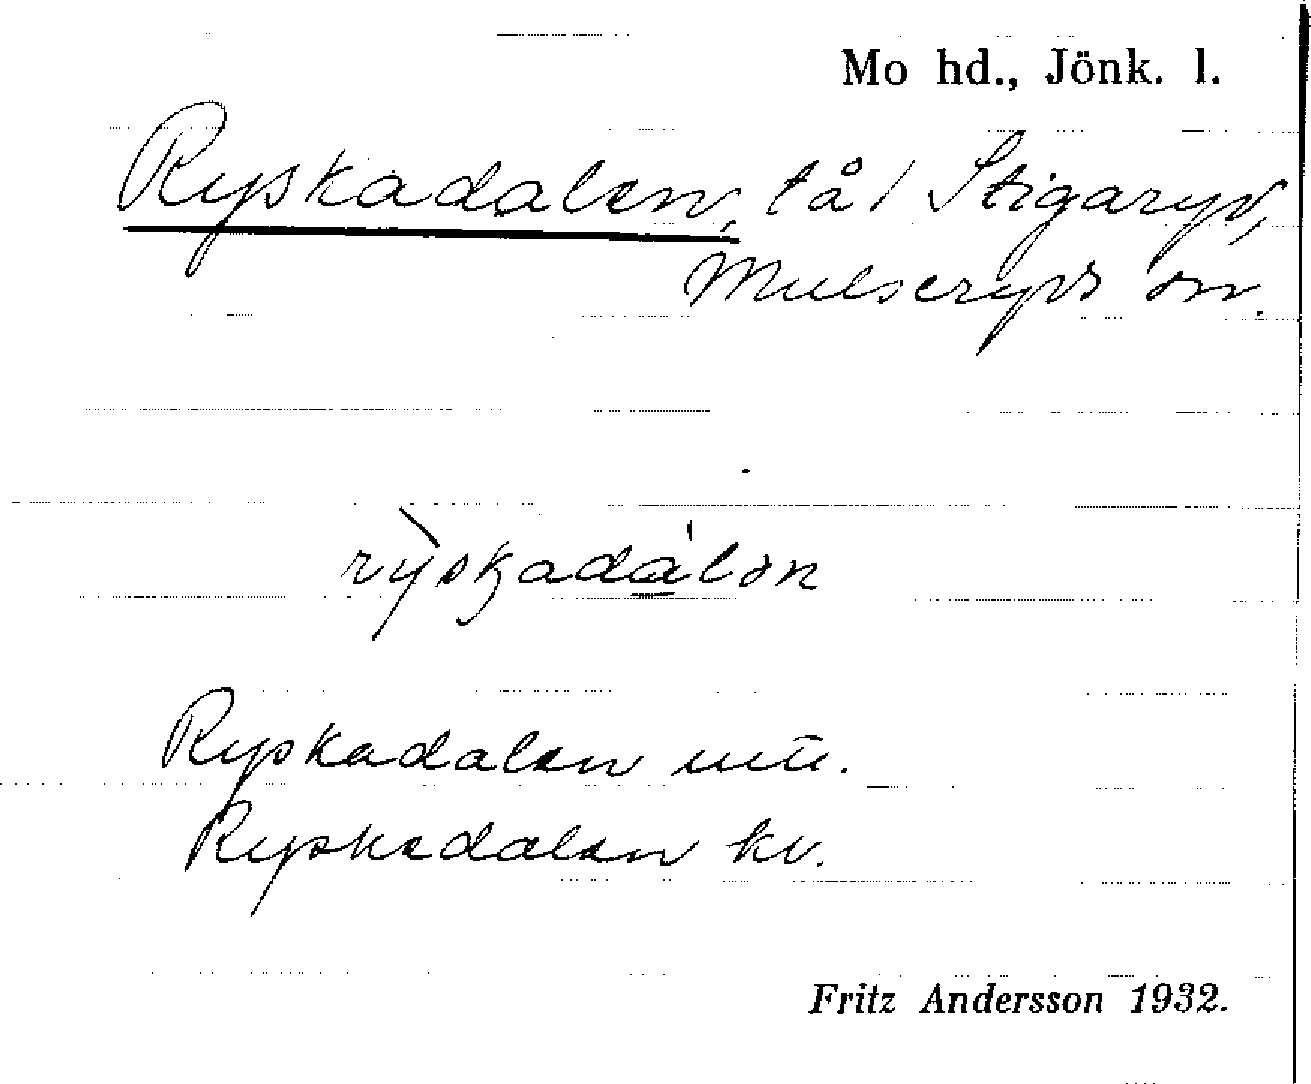 Mo hd., Jönk. l.
Ryskadalen, tå / Stigaryd,
Mulseryds sn.
ryskadalen
Ryskadalen
Ryskadalen kv.
Fritz Andersson 1932.